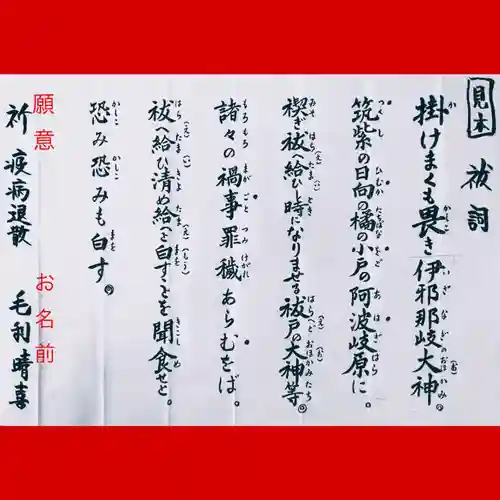 見本
祓詞
掛けまくも畏き伊邪那岐大神。
筑紫の日向の橘の小戸の阿波岐原に。
禊ぎ祓へ給ひし時になりませる祓戸の大神等。
諸々の禍事罪穢あらむをば。
祓へ給ひ清め給へと白すことを聞食せと。
恐み恐みも白す。
願意 お名前
祈 疫病退散 毛利晴喜